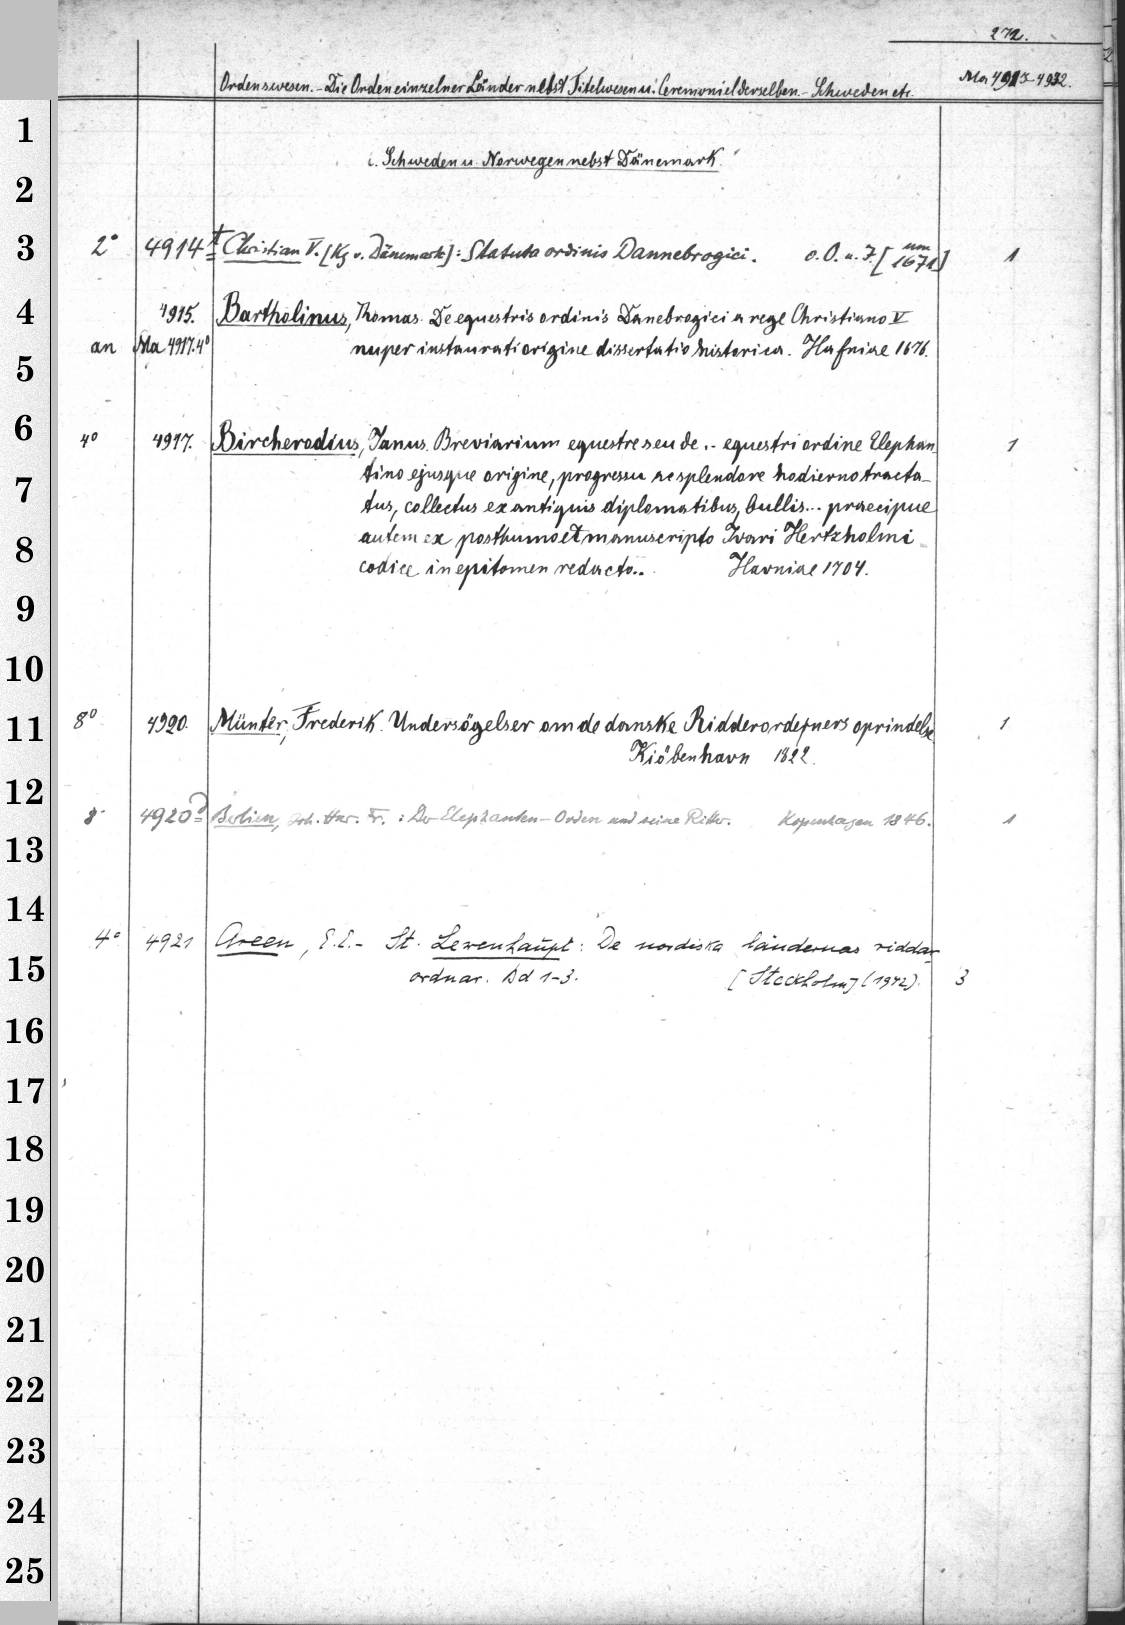 272.
Ordenswesen. - Die Orden einzelner Länder nebst Titelwesen u. Ceremoniel derselben. - Schweden etc. Ma 4913-4932.
1
c. Schweden u. Norwegen nebst Dänemark.
2
3 2° 4914 Christian V. [Kg v. Dänemark]: Statuta ordinis Dannebrogici. o. O. u. J. [um 1671] 1
4 4915. Bartholinus, Thomas. De equestris ordinis Danebrogici a rege Christiano V
an Ma 4917.4° nuper instaurati origine dissertatio historica. Hafniae 1676.
5
6 4° 4917. Bircherodius, Janus. Breviarium equestre seu de .. equestri ordine Elephan
7 tino ejusque origine, progressu ac splendore hodierno tracta-
tus, collectus ex antiquis diplomatibus, bullis... praecipue
8 autem ex posthumo et manuscripto Ivari Hertzholmi
codice in epitomen redacto.. Havniae 1704.
9
10
11 8° 4920. Münter, Frederik. Undersögelser om de danske Ridderordeners oprindelse.
Kiöbenhavn 1822. 1
12
8° 4920 Berlien, Joh. Har. Fr. : Der Elephanten-Orden und seine Ritter. Kopenhagen 1846. 1
13
14
4° 4921 Areen, E.E. - St. Lewenhaupt: De nordiska ländernas riddar-
15 ordnar. Bd 1-3. [Stockholm] (1942). 3
16
17
18
19
20
21
22
23
24
25